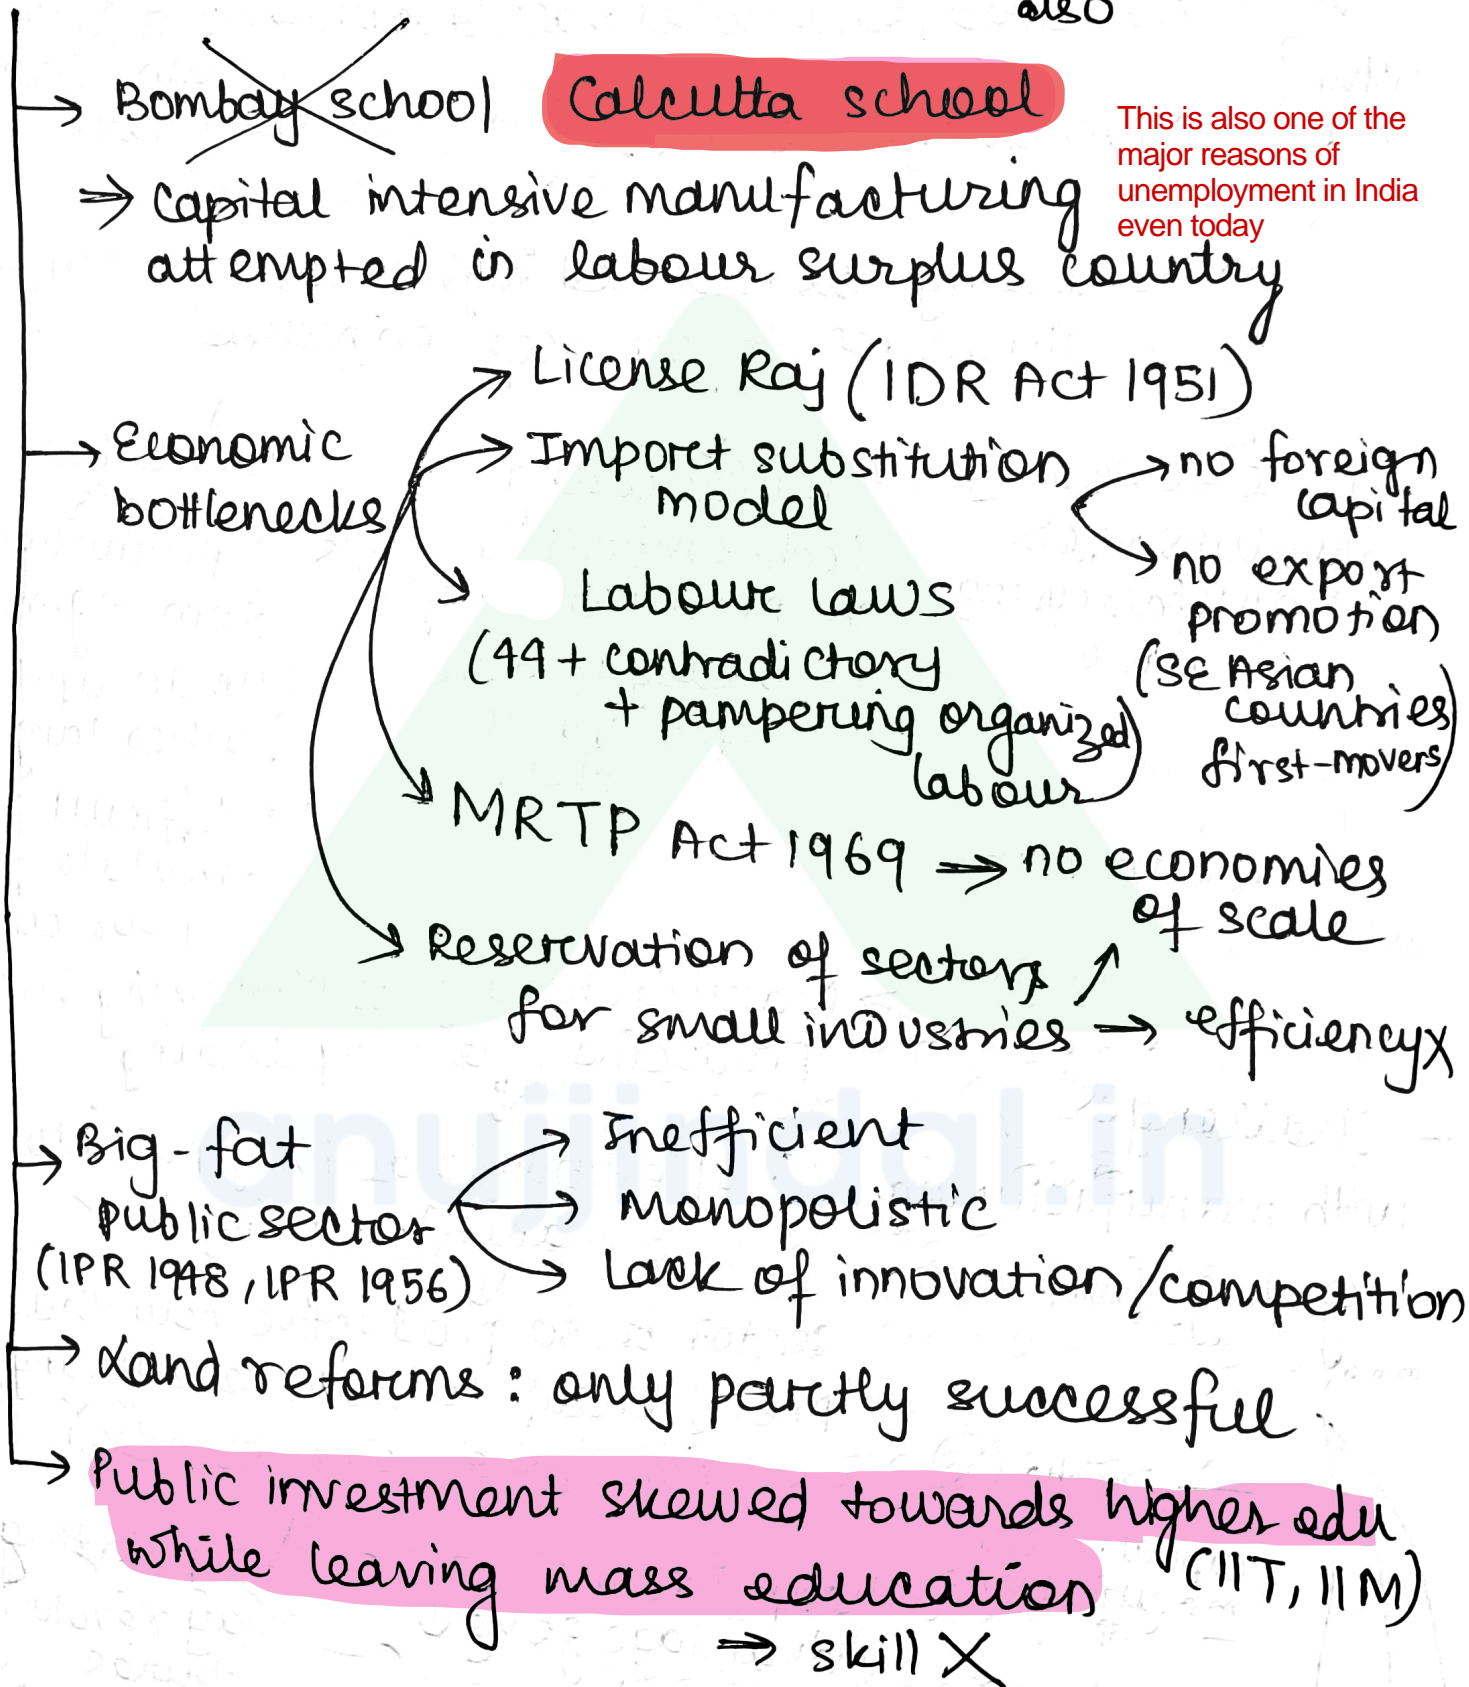 also
Bombay school Calcutta school
This is also one of the
major reasons of
unemployment in India
even today
⇒ Capital intensive manufacturing
attempted in labour surplus country
Economic
bottlenecks
License Raj (IDR Act 1951)
Import substitution
model
no foreign
capital
no export
promotion
(SE Asian
countries
first-movers)
Labour laws
(44 + contradictory
+ pampering organized
labour)
MRTP Act 1969 ⇒ no economies
of scale
Reservation of sectors
for small industries → efficiency x
Big-fat
public sector
(IPR 1948, IPR 1956)
Inefficient
Monopolistic
Lack of innovation/competition
Land reforms: only partly successful.
Public investment skewed towards higher edu
(IIT, IIM)
while leaving mass education
⇒ skill X
anujjindal.in